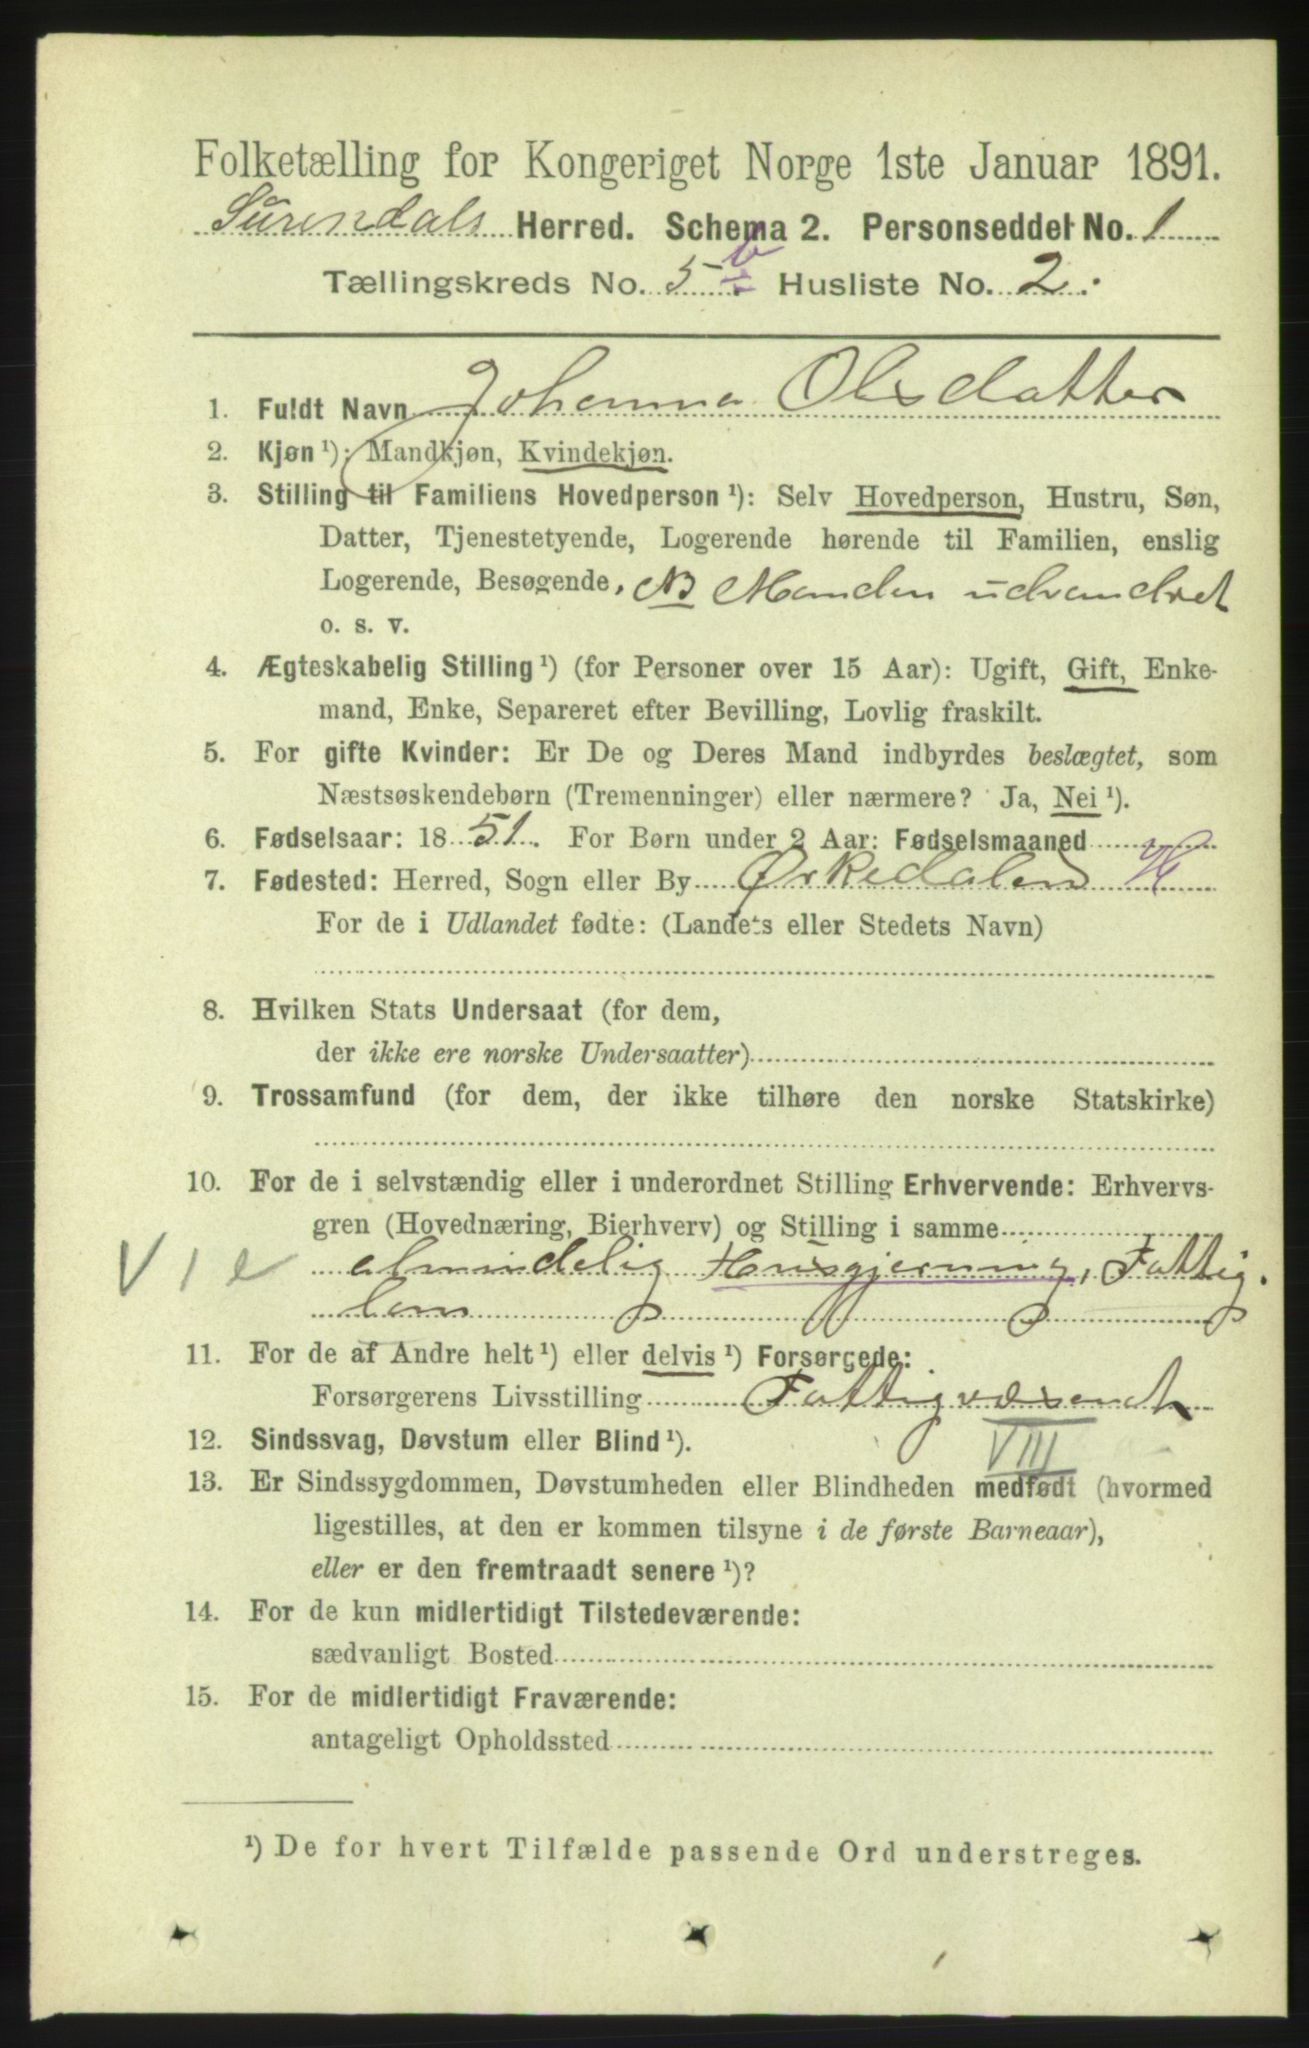 Folketælling for Kongeriget Norge 1ste Januar 1891.
Surendals Herred. Schema 2. Personseddel No. 1
Tællingskreds No. 5 b Husliste No. 2.
1. Fuldt Navn Johanna Olsdatter
2. Kjøn ¹): Mandkjøn, Kvindekjøn.
3. Stilling til Familiens Hovedperson ¹): Selv Hovedperson, Hustru, Søn,
Datter, Tjenestetyende, Logerende hørende til Familien, enslig
Logerende, Besøgende, NB Manden udvandret
o. s. v.
4. Ægteskabelig Stilling ¹) (for Personer over 15 Aar): Ugift, Gift, Enke-
mand, Enke, Separeret efter Bevilling, Lovlig fraskilt.
5. For gifte Kvinder: Er De og Deres Mand indbyrdes beslægtet, som
Næstsøskendebørn (Tremenninger) eller nærmere? Ja, Nei ¹).
6. Fødselsaar: 1851. For Børn under 2 Aar: Fødselsmaaned
7. Fødested: Herred, Sogn eller By Ørkedalen
For de i Udlandet fødte: (Landets eller Stedets Navn)
8. Hvilken Stats Undersaat (for dem,
der ikke ere norske Undersaatter)
9. Trossamfund (for dem, der ikke tilhøre den norske Statskirke)
10. For de i selvstændig eller i underordnet Stilling Erhvervende: Erhvervs-
gren (Hovednæring, Bierhverv) og Stilling i samme
V 1 e almindelig Husgjerning, Fattig.
lem
11. For de af Andre helt ¹) eller delvis ¹) Forsørgede:
Forsørgerens Livsstilling Fattigvæsenet
VIII
12. Sindssvag, Døvstum eller Blind ¹).
13. Er Sindssygdommen, Døvstumheden eller Blindheden medfødt (hvormed
ligestilles, at den er kommen tilsyne i de første Barneaar),
eller er den fremtraadt senere ¹)?
14. For de kun midlertidigt Tilstedeværende:
sædvanligt Bosted
15. For de midlertidigt Fraværende:
antageligt Opholdssted
¹) De for hvert Tilfælde passende Ord understreges.